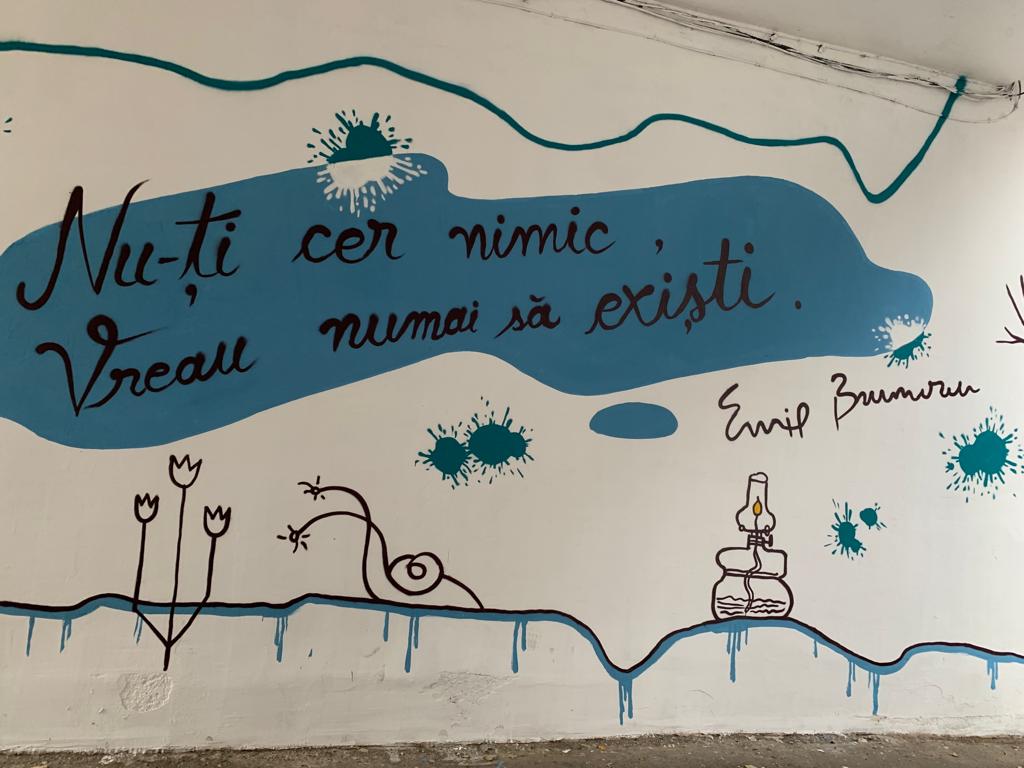 Nu-ți cer nimic,
Vreau numai să exiști.
Emil Brumaru